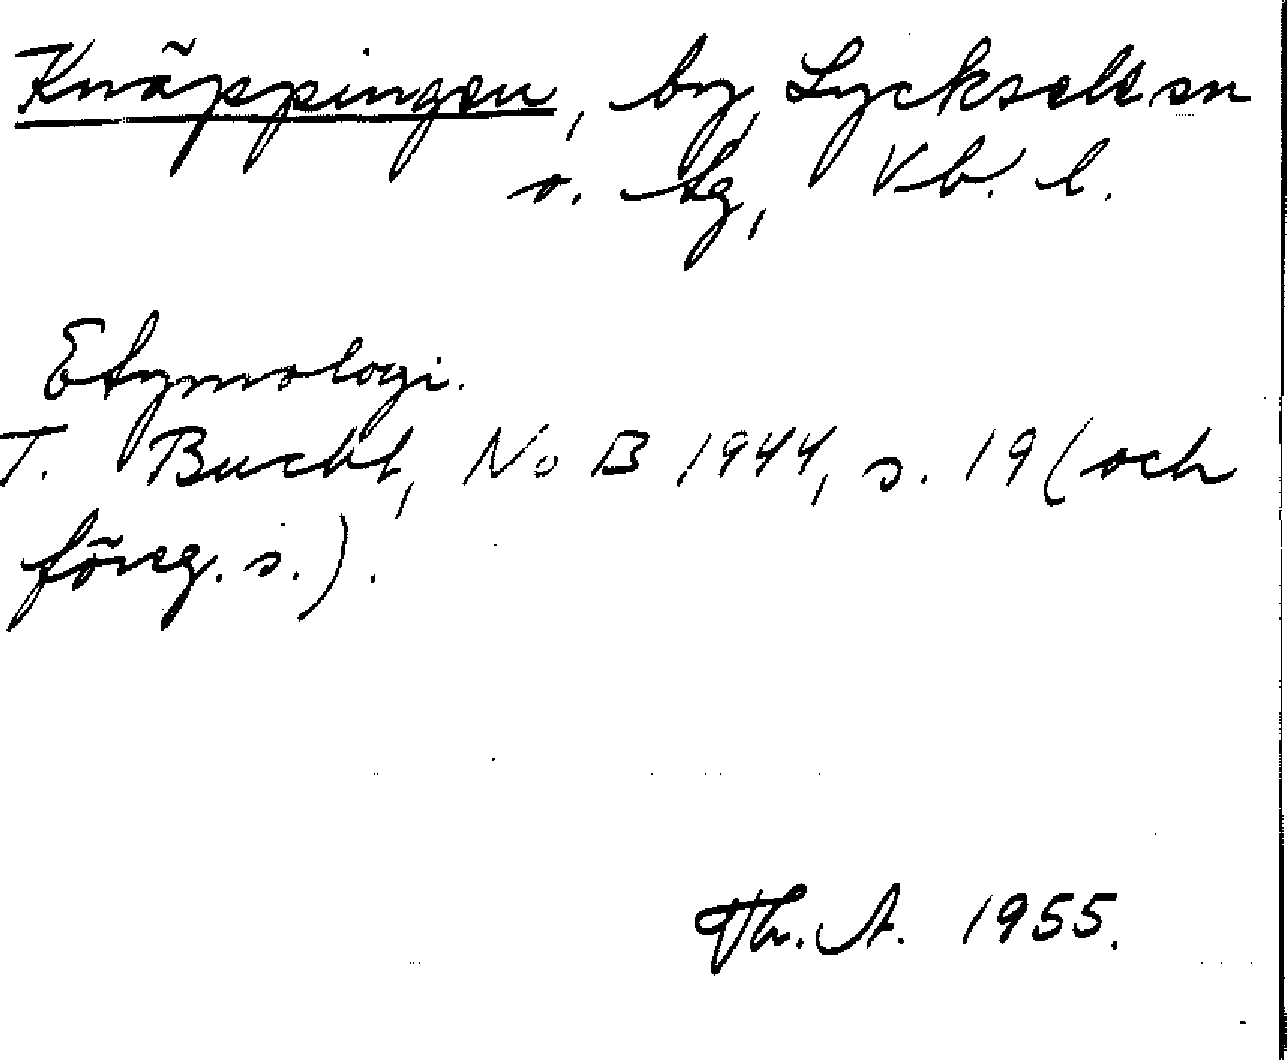 Knäppingen, by, Lycksele sn
o. tg, Vb. l.
Etymologi.
T. Bucht, NoB 1944, s. 19 (och
föreg. s.).
Th. A. 1955.